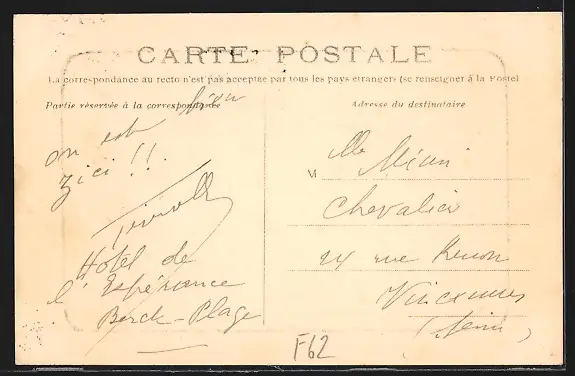 CARTE POSTALE
La correspondance au recto n'est pas acceptée par tous les pays étrangers (se renseigner à la Poste)
Partie réservée à la correspondance
on est bien
ici !!
Hôtel de
l'Espérance
Berck-Plage
Adresse du destinataire
M
Chevalier
24 rue
Vincennes
(Seine)
F62